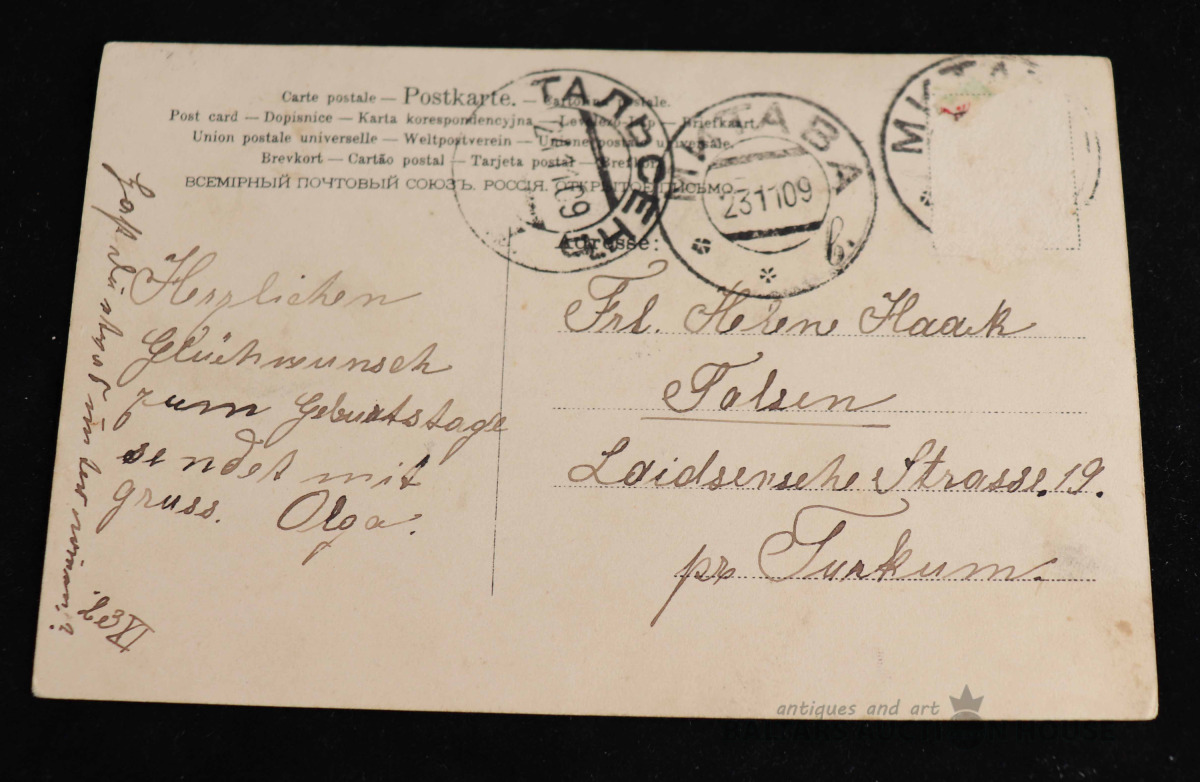 Carte postale — Postkarte. — Cartolina postale.
Post card — Dopisnice — Karta korespondencyjna — Levelező-Lap — Briefkaart.
Union postale universelle — Weltpostverein — Unione postale universale.
Brevkort — Cartão postal — Tarjeta postal — Brefkort
ВСЕМІРНЫЙ ПОЧТОВЫЙ СОЮЗЪ. РОССІЯ. ОТКРЫТОЕ ПИСЬМО.
ТАЛЬСЕНЪ
МИТАВА
231109
b.
МИТА
Adresse:
Herzlichen
Glückwunsch
zum Geburtstage
sendet mit
gruss. Olga.
Frl. Helene Haack
Talsen
Laidsensche Strasse. 19.
pr Turkum.
antiques and art
BALTARS AUCTION HOUSE